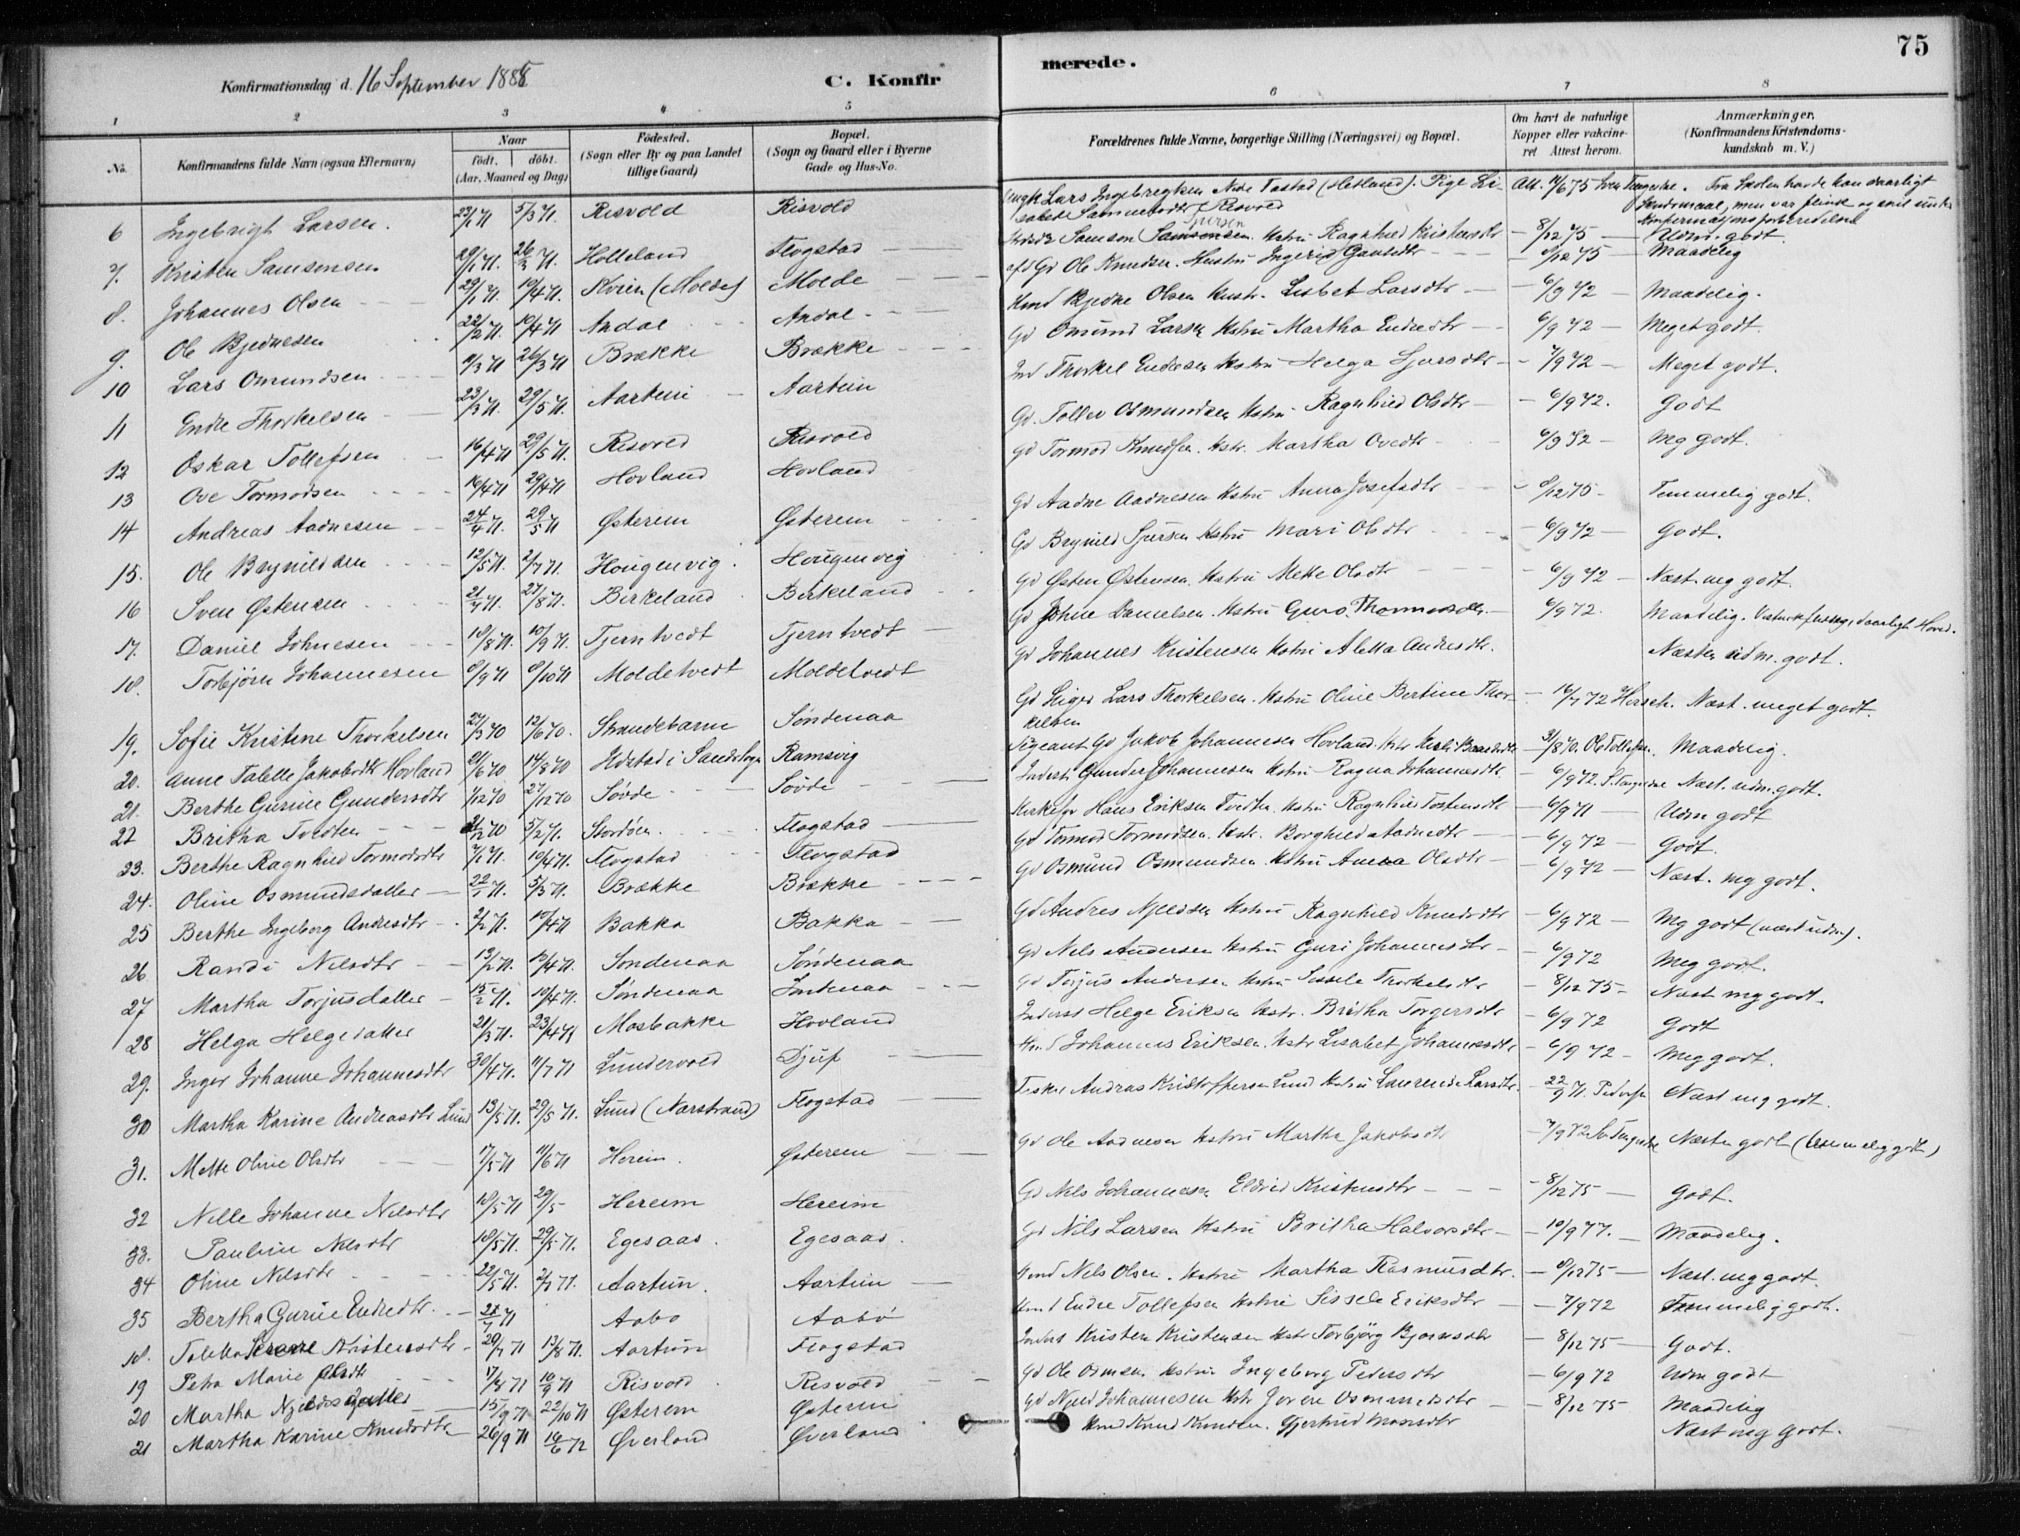 75
Konfirmationsdag d. 16 September 1885
C. Konfirmerede.
1 2 3 4 5 6 7 8
No. Konfirmandens fulde Navn (ogsaa Efternavn) Naar født. døbt. (Aar, Maaned og Dag) Fødested. (Sogn eller By og paa Landet tillige Gaard) Bopæl. (Sogn og Gaard eller i Byerne Gade og Hus-No. Forældrenes fulde Navne, borgerlige Stilling (Næringsvei) og Bopæl. Om havt de naturlige Kopper eller vakcineret Attest herom. Anmærkninger, (Konfirmandens Kristendomskundskab m. V.)
6 Ingebrigt Larsen. 5/3 71. Risvold Risvold Lars Ingebregtsen Pige Lisabet Samuelsdtr Risvold
7. Kristen Samsonsen 26/3 71. Holteland Flogstad Samson Samsonsen Hstru Ragnhild Kristensdtr 8/12 75 Udm. godt.
8. Johannes Olsen 29/1 71. 10/4 71. Molde Gd Ole Knudsen. Hustru 8/12 75 Maadelig
9. Ole Bjednesen 22/2 71. 10/4 71. Andal Andal Hmd Bjedne Olsen Hustr. Lisbet Larsdtr 6/9 72 Maadelig.
10 Lars Omundsen 26/3 71 Brække Brække Gd Omund Larsen Hstru Martha Endredtr 6/9 72 Meget godt.
11 Endre Thorkelsen 23/3 71. 29/5 71. Aartun Aartun Thorkel Endresen Hstru Helga Sjursdtr 7/9 72 Meget godt.
12 Oskar Tollefsen 16/4 71 29/5 71. Risvold Risvold Gd. Tollev Osmundsen Hstru Ragnhild Olsdtr 6/9 72. Godt
13 Ove Tormodsen 16/4 71 29/4 71 Hovland Hovland Gd Tormod Knudsen. Hstr. Martha Ovedtr 6/9 72 Meg godt.
14 Andreas Aadnesen 24/4 71. 29/5 71 Østerem Østerem Gd Aadne Aadnesen Hstru Anna Josefsdtr 8/12 75 Temmelig godt.
15. Ole Brynildsen 12/5 71. 2/7 71. Hougenvig. Hougenvig Gd Brynild Sjursen Hstru Mari Olsdtr 6/9 72 Godt.
16 Sven Østensen 21/7 71. 27/8 71. Birkeland Birkeland Gd Østen Østensen Hstru Mette Olsdtr 6/9 72 Næst. meg godt.
17. Daniel Johnesen 18/8 71. 10/9 71. Tjerntvedt Tjerntvedt Gd Johne Danielsen. Hstru Guro 6/9 72. Maadelig. Hoved.
18. Torbjørn Johannesen 8/9 71 8/10 71 Moldetvedt Moldetvedt Gd Johannes Kristensen Hstru Aletta Andresdtr. Næsten udm. godt.
19. Sofie Kristine Thorkelsen 27/3 70 12/6 70. Strandebarm Søndenaa Gd Lars Thorkelsen. Hstru Oline Bertine Thorkelsen 16/7 72 Næst. meget godt.
20. Anne Talette Jakobsdtr Hovland 21/6 70 14/8 70 Ramsvig Gd Jakob Johannesen Hovland. 31/8 70. Ole Tollefsen. Maadelig.
21. Berthe Gurine Gundersdtr 1/12 70 27/12 70 Søvde Søvde Inderst Gunder Johannesen Hstru Ragna Johannesdtr. 6/9 72. Næst. udm. godt.
22 Britha Tvedten 5/2 71. Stordøen. Flogstad Kirkesgr Hans Eriksen Tvedten Hstru Ragnhild Tostensdtr 6/9 71 Udm godt
23. Berthe Ragnhild Tormodsdtr 7/1 71. 10/4 71. Flogstad Flogstad Gd Tormod Tormodsen Hstr. Borghild Aadnedtr 6/9 72 Godt.
24. Oline Osmundsdatter 22/1 71. 5/3 71. Brække Brække Gd Osmund Osmundsen Hstru Anna Olsdtr 6/9 72 Næst. meg godt.
25 Berthe Ingeborg Andresdtr 2/2 71. 10/4 71 Bakka Bakka Gd Andres Njeldsen Hstru Ragnhild Knudsdtr 6/9 72 Meg godt (næst udm).
26 Randi Nilsdtr 13/2 71. 10/4 71. Søndenaa Søndenaa Gd Nels Andersen Hstru Guri Johannesdtr 6/9 72 Meg godt.
27 Martha Torjusdatter 15/2 71. 10/4 71. Søndenaa Søndenaa Gd Torjus Andersen Hstru Sissele Thorkelsdtr 8/12 75 Næst meg godt.
28 Helga Helgedatter 21/3 71. 23/4 71 Mosbakke Hovland Inderst Helge Eriksen Hstr. Britha Torgersdtr 6/9 72 Godt
29. Inger Johanne Johannesdtr 30/4 71. 11/7 71 Lundervold Djup Johannes Eriksen. Hstr Lisabet Johannesdtr 6/9 72 Meg godt.
30 Martha Karine Andreasdtr Lund 13/5 71. 29/5 71. Lund (Nærstrand) Flogstad Andreas Kristoffersen Lund Hstru Laurense Larsdtr. 22/9 71. Næst meg godt.
31. Mette Oline Olsdtr 17/5 71 11/6 71 Hereim. Østerem Gd Ole Aadnesen Hstru Martha Jakobsdtr 7/9 72 Næsten godt (temmelig godt)
32 Nille Johanne Nelsdtr 18/5 71 29/5 Hereim Hereim Gd Nels Johannesen Eldrid Kristensdtr 8/12 75 Godt.
33. Pauline Nilsdtr 18/5 71. 29/5 71. Egesaas. Egesaas. Gd Nils Larsen Hstru Britha Halvorsdtr 10/9 77. Maadelig.
34 Oline Nelsdtr 22/5 71. 2/7 71. Aartun. Aartun Hmd Nels Olsen. Hstru Martha Rasmusdtr. 8/12 75 Næst. meg godt.
35 Bertha Gurine Endredtr. 21/7 71 Aabø Aabø Hmd Endre Tollefsen Hstru Sissele Eriksdtr 7/9 72 Temmelig godt.
18. Kristensdtr 29/7 71 13/8 71. Aartun Flogstad Inderst Kristen Kristensen Hstr Torbjørg Bjørnsdtr 8/12 75 Godt.
19 Petra Marie Olsdtr 17/8 71 10/9 71 Risvold Risvold Gd Ole Osmsen Hstru Ingeborg Pedersdtr 6/9 72 Udm godt
20 Martha Njeldsdatter 15/9 71 22/10 71 Østerem Østerem Gd Njeld Johannesen Hstr Jorine Osmundsdtr 8/12 75 Maadelig
21 Martha Karine Knudsdtr 26/9 71 16/6 72 Øverland Øverland Hmd Knud Knudsen. Gjertrud Næst meg godt.